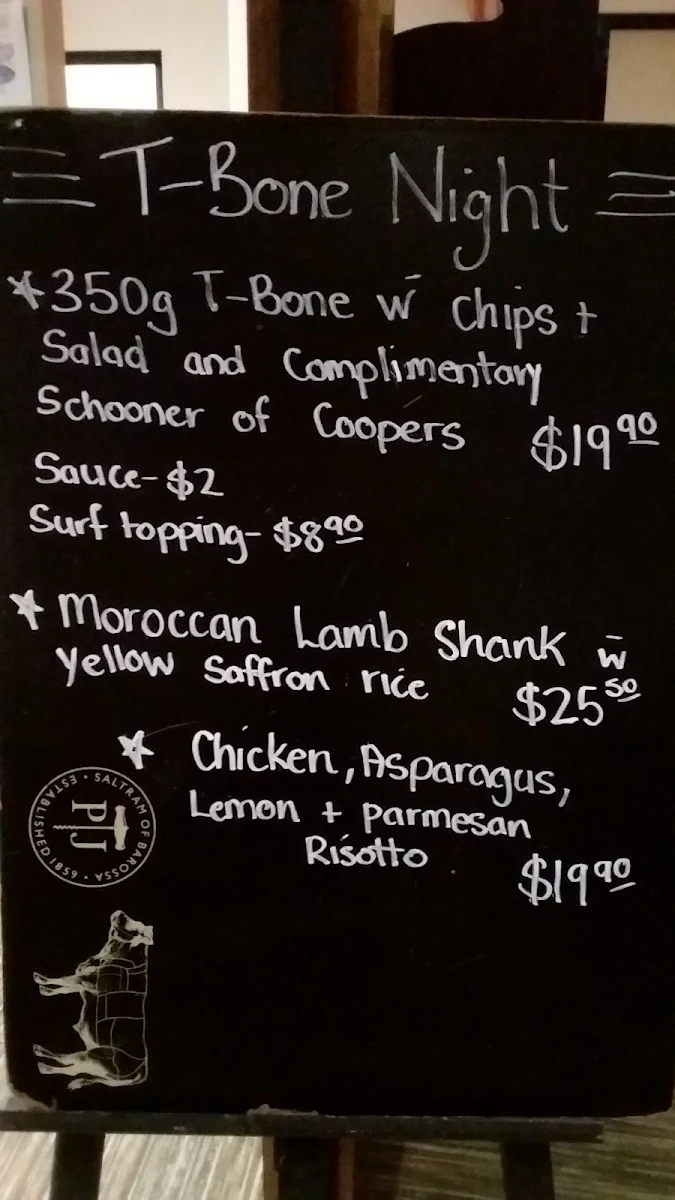 T-Bone Night
*350g T-Bone w̄ chips +
Salad and Complimentary
Schooner of Coopers $19 90
Sauce-$2
Surf topping- $8 90
* Moroccan Lamb Shank w̄
Yellow Saffron rice $25 50
* Chicken, Asparagus,
Lemon + parmesan
Risotto $19 90
SALTRAM OF BAROSSA • ESTABLISHED 1859 • ESTABLISHED 1859
PJ